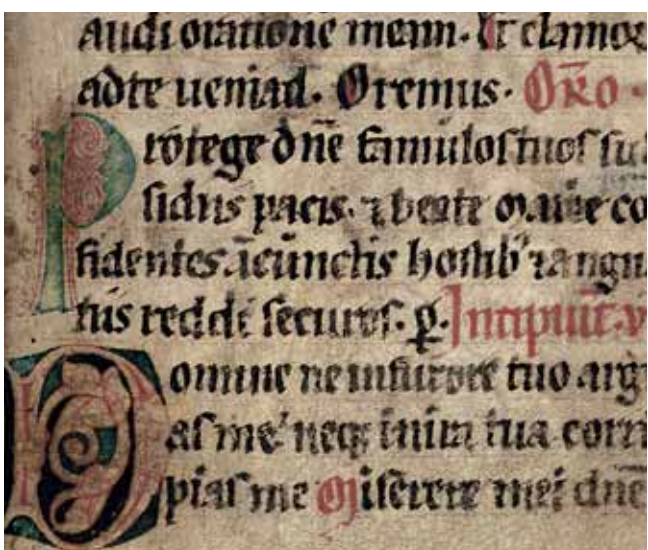 audi oratione meam. Et clamor
ad te ueniad. Oremus. Oro.
Protege dne famulos tuos su
sidiis pacis. ⁊ beate marie co
fidentes a cunctis hostib' ⁊ angu
tiis redde securos. p. Incipiut
Domine ne in furore tuo argu
as me. neq; in ira tua corri
pias me Miserere mei dne